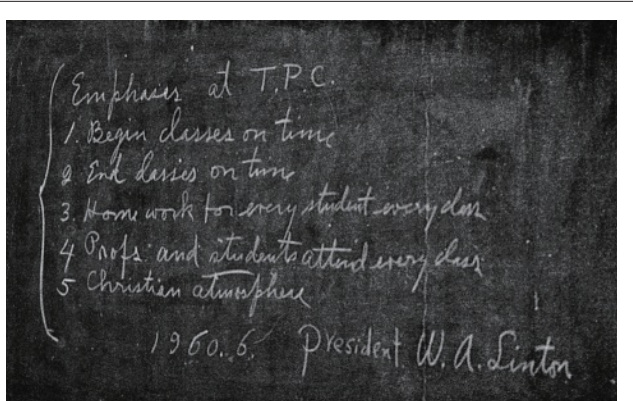 Emphasis at T.P.C.
1. Begin classes on time
2 End classes on time
3. Home work for every student every class
4 Profs. and students attend every class
5 Christian atmosphere
1960. 6. President W. A. Linton